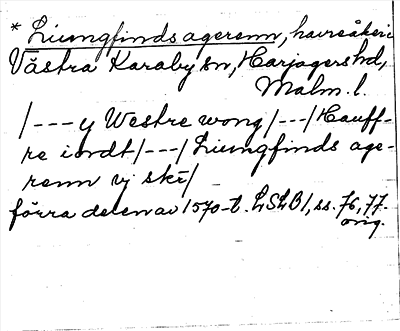 * Liungfinds agerenn, havreåkern
Västra Karaby sn, Harjagers hd,
Malm. l.
/---y Westre wong/---/Hauff-
re iordt/---/Liungfinds age-
renn vj skr/
förra delen av 1570-t. LSLB1, ss. 76, 77.
orig.